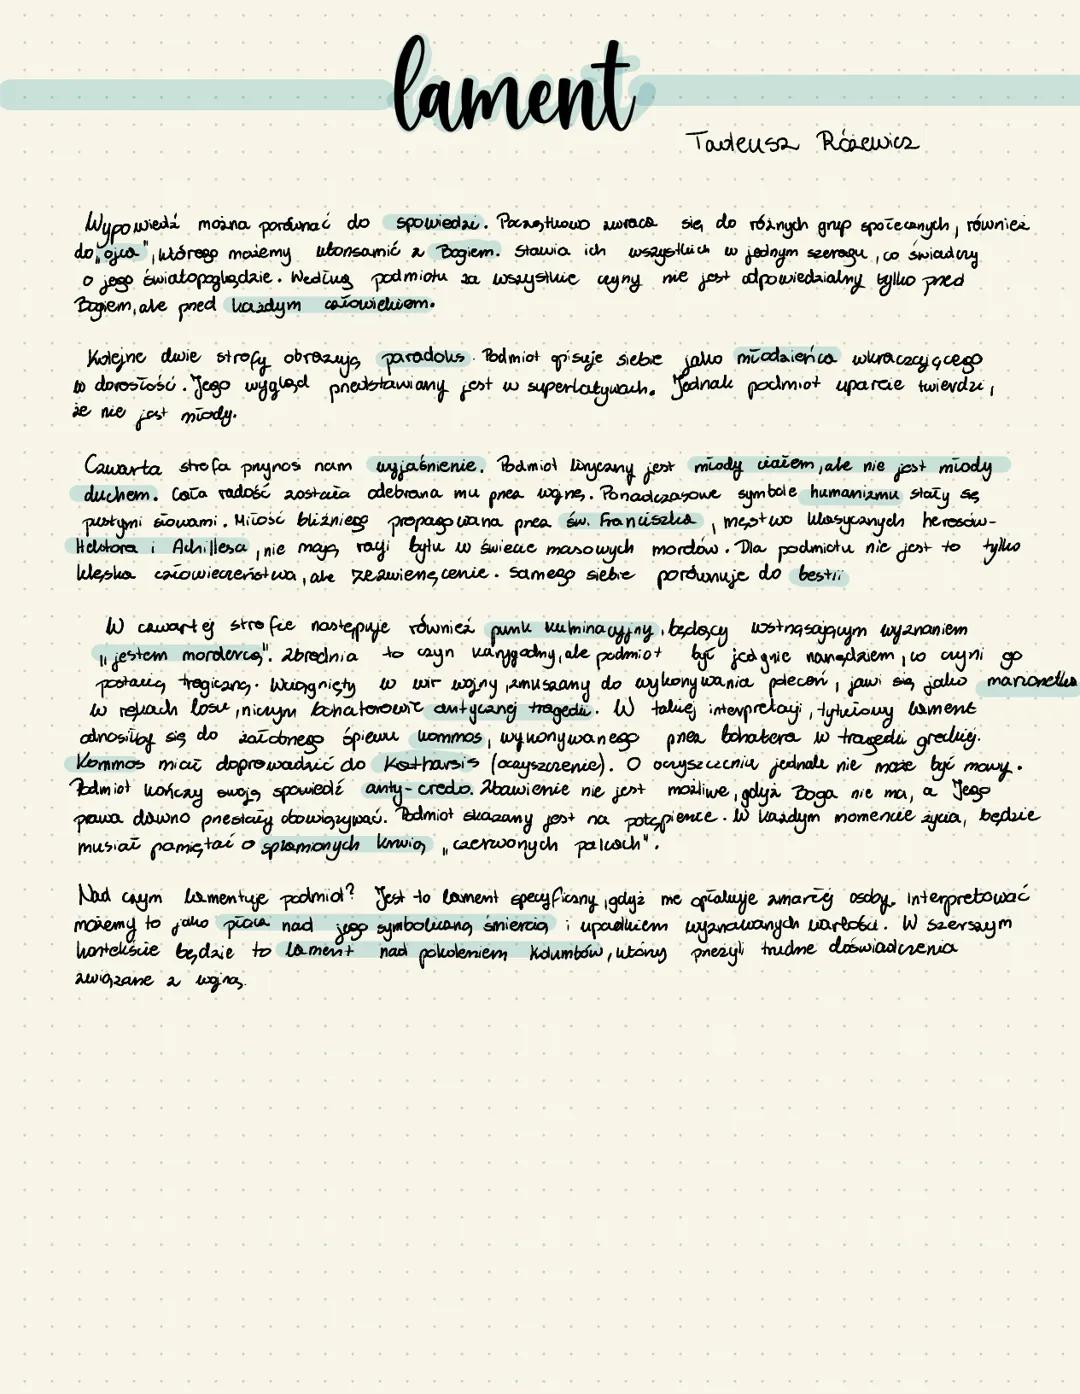 lament
Tadeusz Różewicz
Wypowiedź można porównać do spowiedzi. Początkowo zwraca się do różnych grup społecznych, również
do „ojca", którego możemy utożsamić z Bogiem. Stawia ich wszystkich w jednym szeregu, co świadczy
o jego światopoglądzie. Według podmiotu za wszystkie czyny nie jest odpowiedzialny tylko przed
Bogiem, ale przed każdym człowiekiem.
Kolejne dwie strofy obrazują paradoks. Podmiot opisuje siebie jako młodzieńca wkraczającego
w dorosłość. Jego wygląd przedstawiany jest w superlatywach. Jednak podmiot uparcie twierdzi,
że nie jest młody.
Czwarta strofa przynosi nam wyjaśnienie. Podmiot liryczny jest młody ciałem, ale nie jest młody
duchem. Cała radość została odebrana mu przez wojnę. Ponadczasowe symbole humanizmu stały się
pustymi słowami. Miłość bliźniego propagowana przez św. Franciszka, męstwo klasycznych herosów-
Hektora i Achillesa, nie mają racji bytu w świecie masowych mordów. Dla podmiotu nie jest to tylko
klęska człowieczeństwa, ale zezwierzęcenie. Samego siebie porównuje do bestii
W czwartej strofie następuje również punk kulminacyjny, będący wstrząsającym wyznaniem
„jestem mordercą". Zbrodnia to czyn karygodny, ale podmiot był jedynie narzędziem, co czyni go
postacią tragiczną. Wciągnięty w wir wojny, zmuszany do wykonywania poleceń, jawi się jako marionetka
w rękach losu, niczym bohaterowie antycznej tragedii. W takiej interpretacji, tytułowy lament
odnosiłby się do żałobnego śpiewu kommos, wykonywanego przez bohatera w tragedii greckiej.
Kommos miał doprowadzić do Katharsis (oczyszczenie). O oczyszczeniu jednak nie może być mowy.
Podmiot kończy swoją spowiedź anty-credo. Zbawienie nie jest możliwe, gdyż Boga nie ma, a Jego
prawa dawno przestały obowiązywać. Podmiot skazany jest na potępienie. W każdym momencie życia, będzie
musiał pamiętać o splamionych krwią „czerwonych palcach".
Nad czym lamentuje podmiot? Jest to lament specyficzny, gdyż nie opłakuje zmarłej osoby. Interpretować
możemy to jako płacz nad jego symboliczną śmiercią i upadkiem wyznawanych wartości. W szerszym
kontekście będzie to lament nad pokoleniem Kolumbów, którzy przeżyli trudne doświadczenia
związane z wojną.